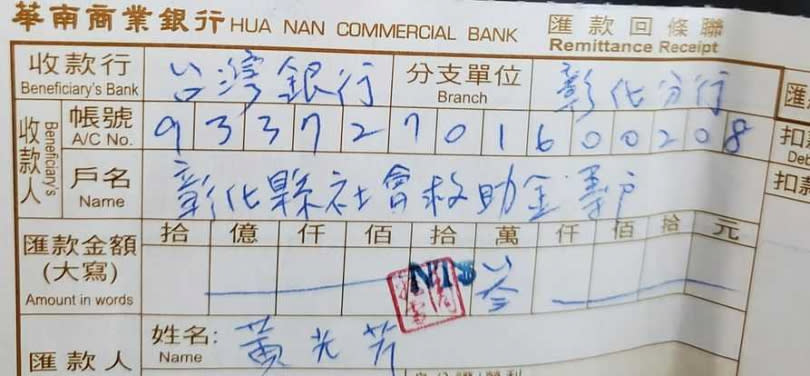 華南商業銀行 HUA NAN COMMERCIAL BANK 匯款回條聯
Remittance Receipt
收款行 台灣銀行 分支單位 彰化分行
Beneficiary's Bank Branch
收款人 Beneficiary's
帳號 93372701600208
A/C No.
戶名 彰化縣社會救助金專戶
Name
匯款金額 拾 億 仟 佰 拾 萬 仟 佰 拾 元
(大寫) NT$
Amount in words
匯款人 姓名: 黃光芳
Name
匯
扣
扣